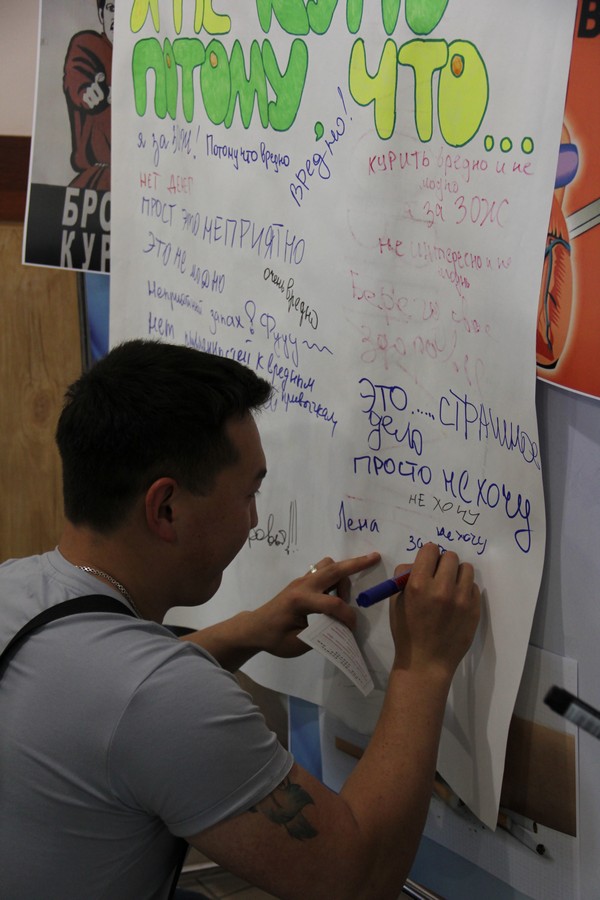 Я НЕ КУРЮ
ПОТОМУ, ЧТО...
я за ЗОЖ! Потому что вредно
вредно!
НЕТ ДЕНЕГ
ПРОСТ ЭТО НЕПРИЯТНО
Это не модно
очень вредно
Неприятный запах? Фууу
Нет
к вредным
привычкам
курить вредно и не
модно
за ЗОЖ
не интересно и не
модно
Это.....СТРАШНОЕ
дело
ПРОСТО НЕ ХОЧУ
НЕ ХОЧУ
Лена
не хочу
за
БРО
КУР
В